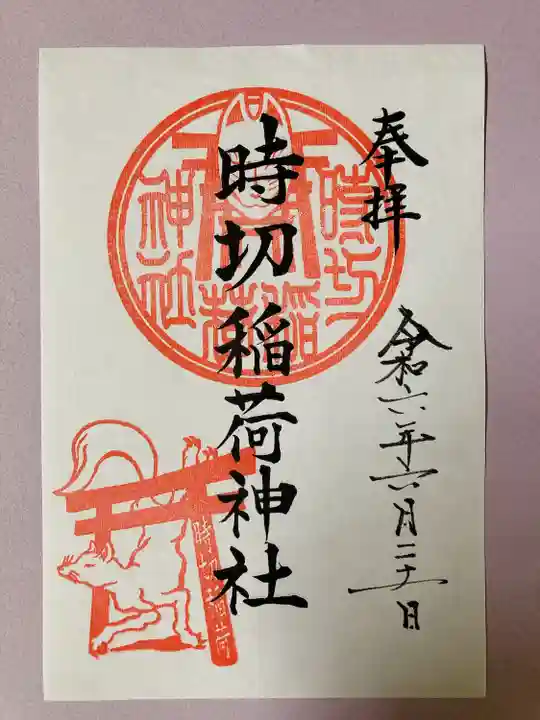 奉拝
令和六年六月二十一日
時切稲荷神社
時切稲荷神社
時切稲荷